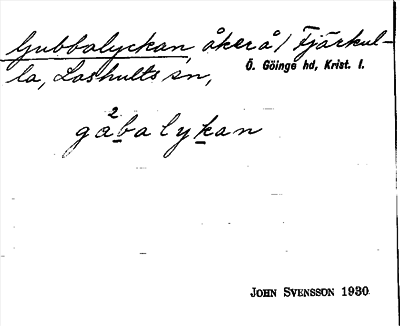 Gubbalyckan, åker å/ Fjärkul-
la, Loshults sn,
Ö. Göinge hd, Krist. l.
gåbalykan
2
JOHN SVENSSON 1930